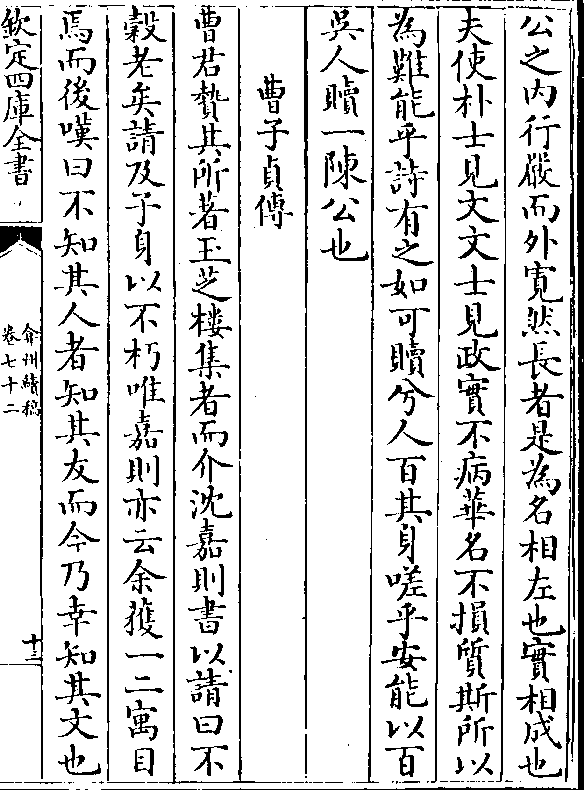 公之内行嚴而外寛然長者是為名相左也實相成也
夫使朴士見文文士見政實不病華名不損質斯所以
為難能乎詩有之如可贖兮人百其身嗟乎安能以百
吳人贖一陳公也
曹子貞傳
曹君贄其所著玉芝樓集者而介沈嘉則書以請曰不
榖老矣請及予身以不朽唯嘉則亦云余獲一二寓目
焉而後嘆曰不知其人者知其友而今乃幸知其文也
欽定四庫全書
弇州續稿
卷七十二
十三